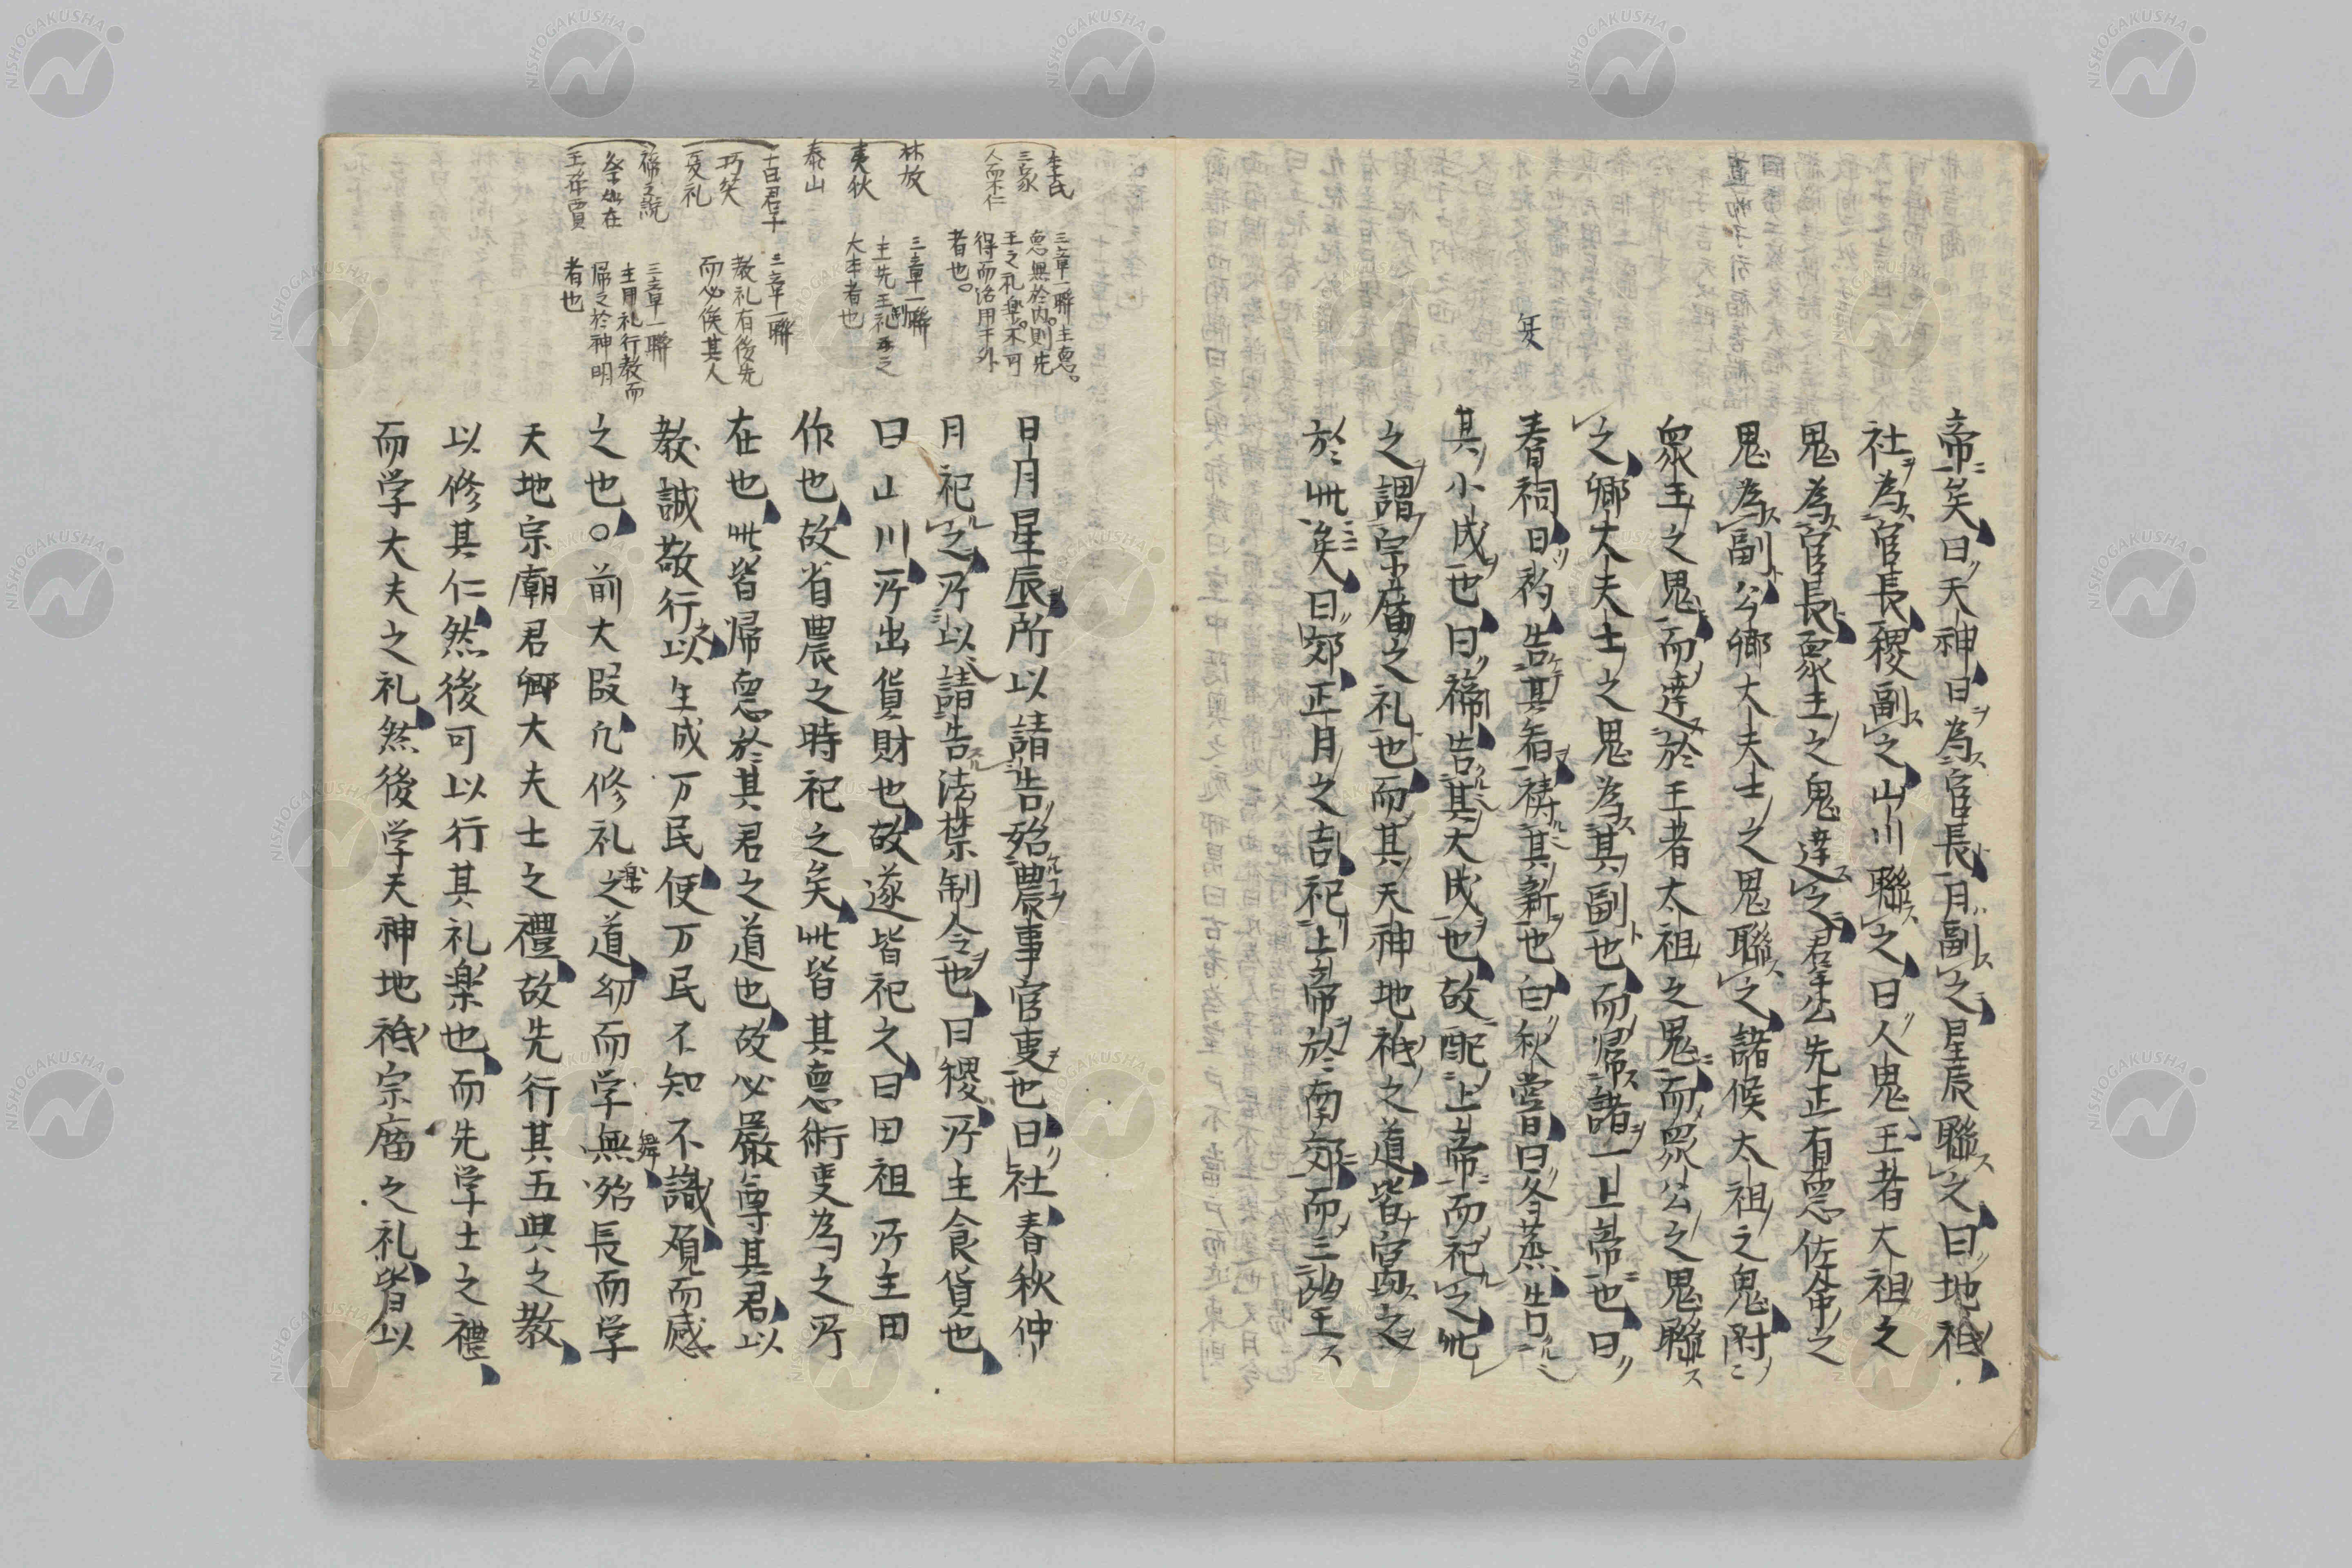 帝矣曰天神日為官長月副之星辰聯之曰地祇
社為官長稷副之山川聯之曰人鬼王者大祖之
鬼為官長衆主之鬼達之君公先正有悳佐命之
鬼為副公卿大夫士之鬼聯之諸侯太祖之鬼附
衆主之鬼而達於王者太祖之鬼而衆公之鬼聯
之卿大夫士之鬼為其副也而帰諸上帝也曰
春祠曰礿告其着祷其新也白秋嘗曰冬烝告
其小成也曰禘告其大成也故配上帝而祀之此
之謂宗庿之礼也而其天神地祇之道皆寓之
於此矣曰郊正月之吉祀上帝於南郊而三望
矢
日月星辰所以請告始農事官吏也曰社春秋仲
月祀之所以請告法禁制令也曰稷所主食貨也
曰山川所出貨財也故遂皆祀之曰田祖所主田
作也故省農之時祀之矣此皆其悳術吏為之所
在也此皆帰悳於其君之道也故必嚴尊其君以
教誠敬行之以生成万民使万民不知不識頑而感
之也○前大段凡修礼楽之道幼而学舞無始長而学
天地宗廟君卿大夫士之禮故先行其五典之教
以修其仁然後可以行其礼楽也而先学士之禮
而学大夫之礼然後学天神地祇宗庿之礼皆以
季氏
三家
人而不仁
三章一聯主悳
悳無於内則先
王之礼楽不可
得而治用于外
者也
林放
夷狄
泰山
三章一聯
主先王制礼之
大本者也
君子
巧笑
夏礼
三章一聯
教礼有後先
而必俟其人
禘之説
祭如在
王孫賈
三章一聯
主用礼行教而
帰之於神明
者也
NISHOGAKUSHA